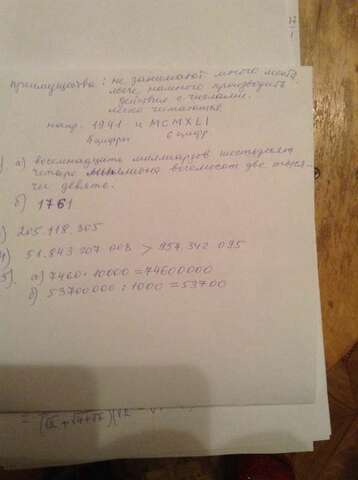 преимущества: не занимают много места
легче намного производить
действия с числами.
легко читаются
напр. 1941 и MCMXLI
цифры 6 цифр
а) восемнадцать миллиардов шестьдесят
четыре миллиона восемьсот две тыся-
чи девять.
б) 1761
) 205.118.305
4) 51.843.207.008 > 957.342.095
5). а) 7460 · 10000 = 74600000
б) 53700.000 : 1000 = 53700